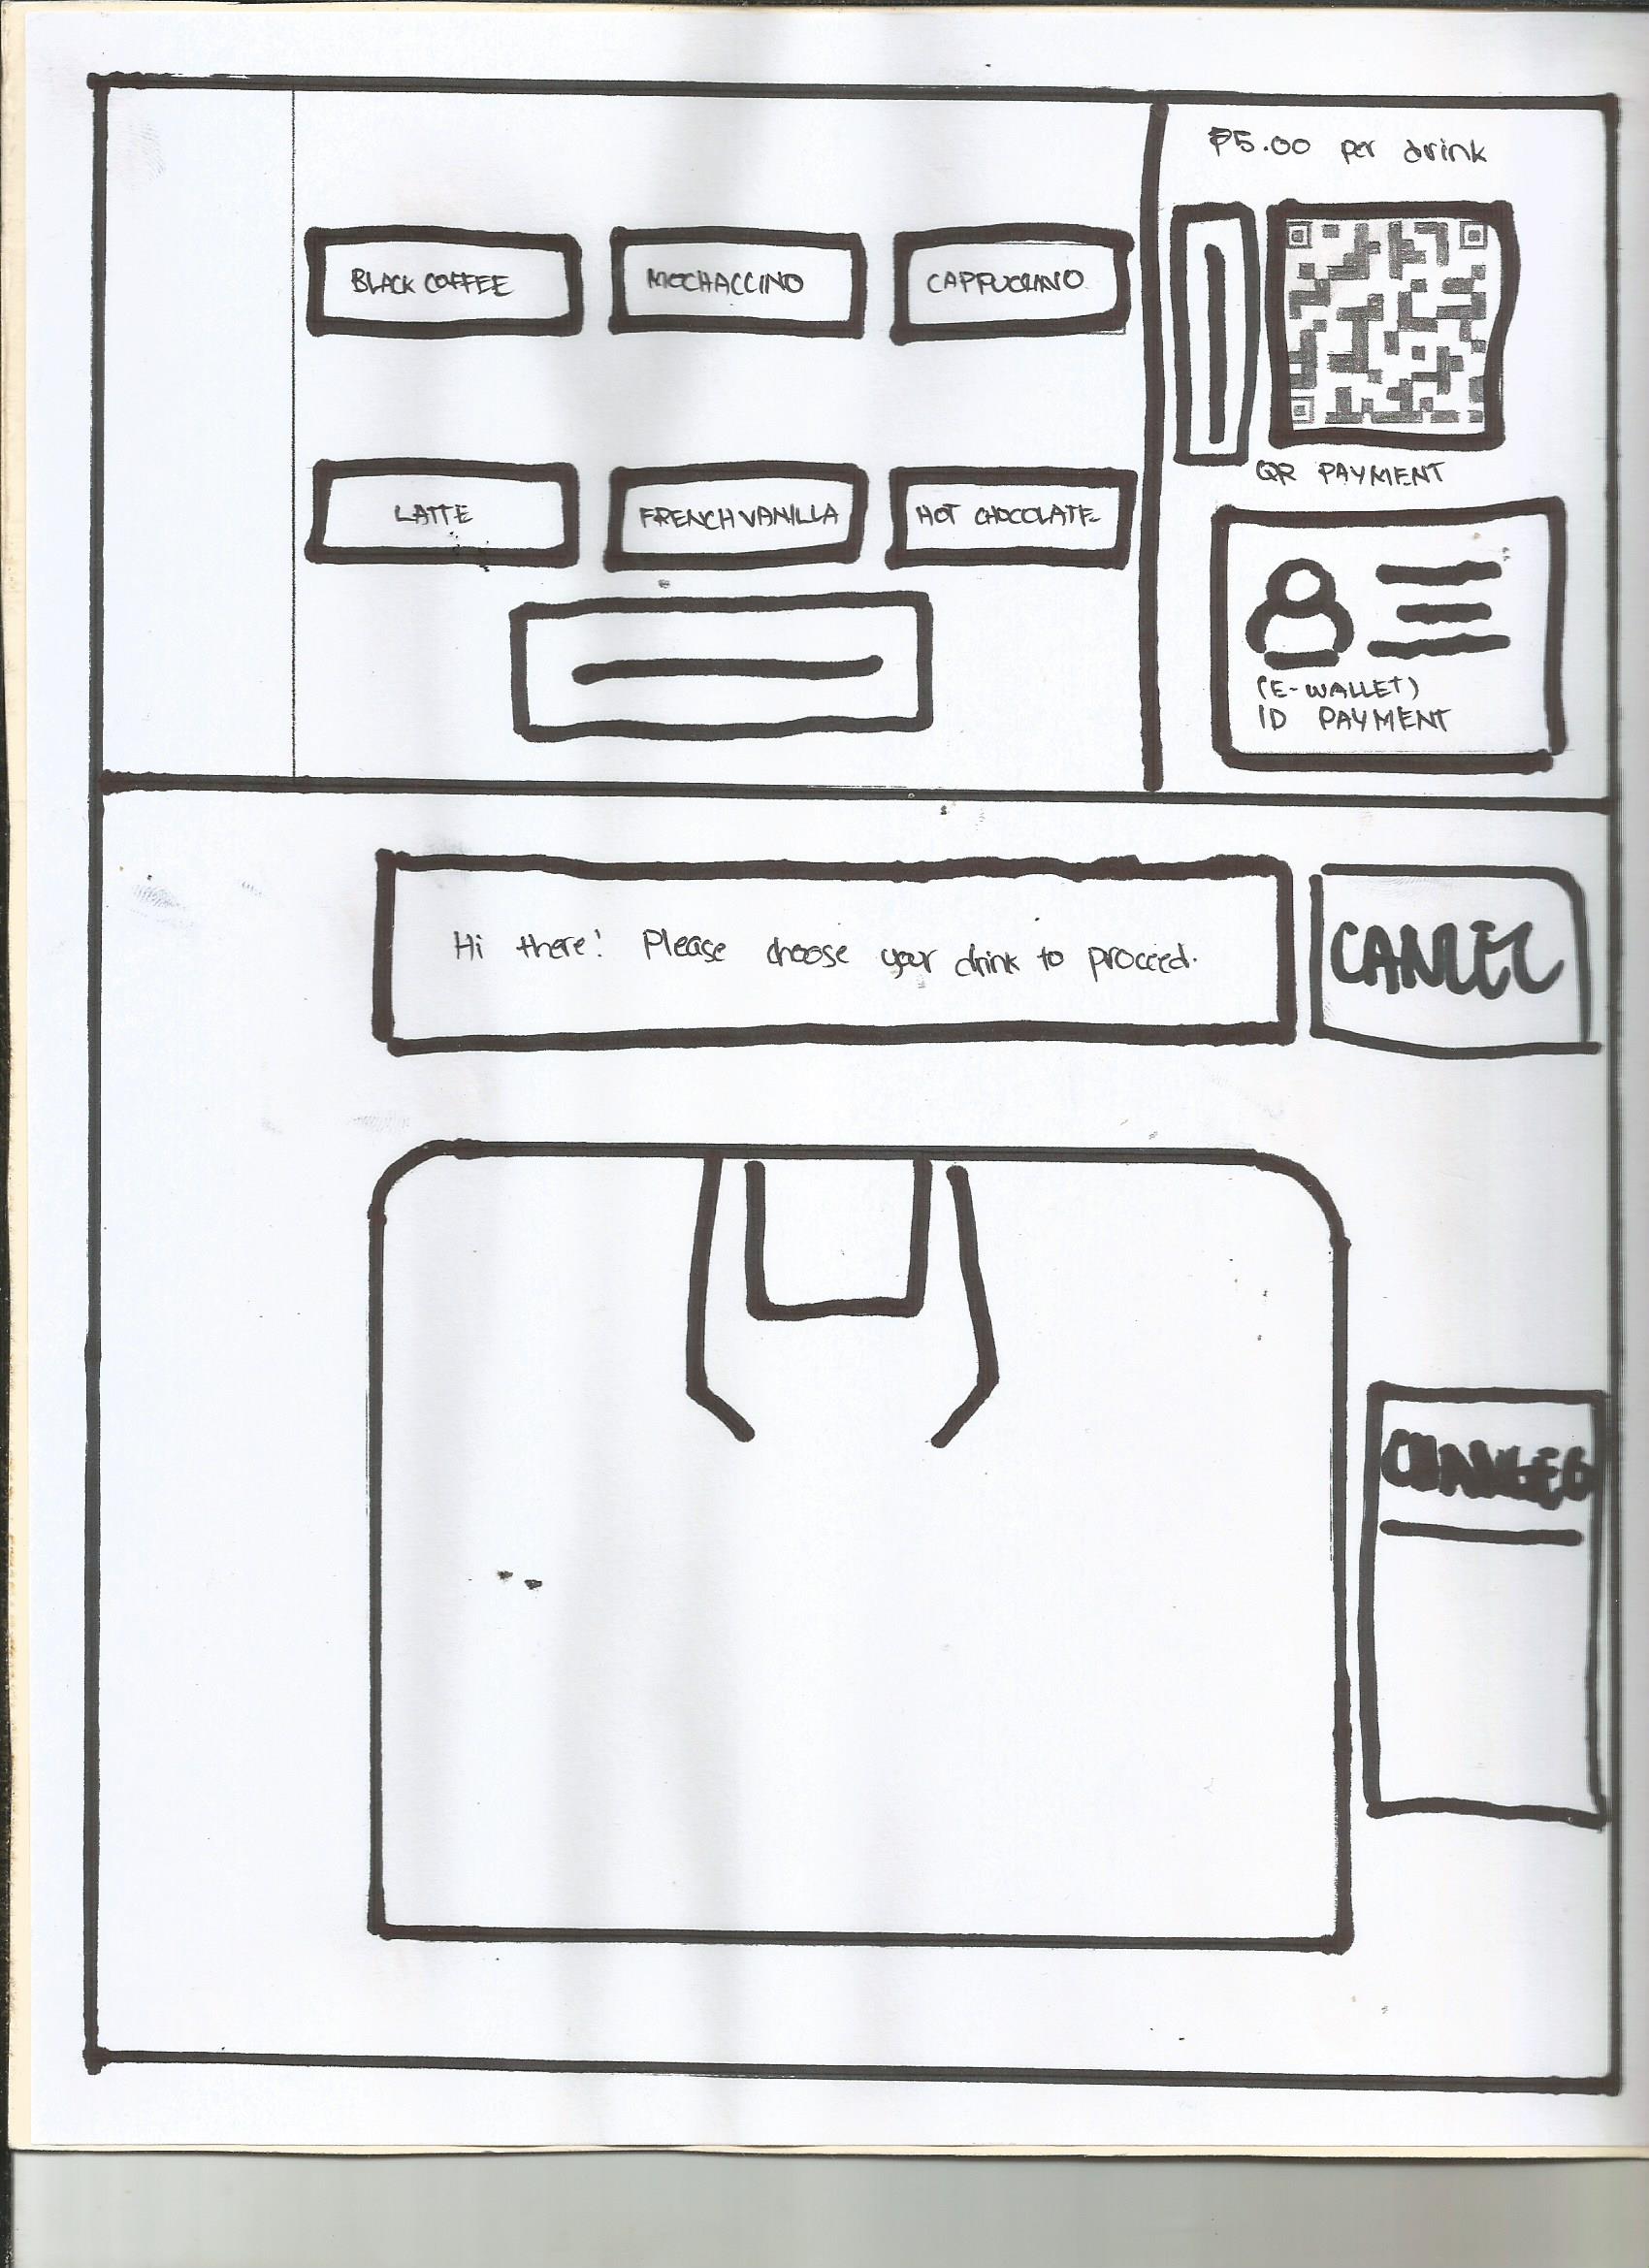 ₱5.00 per drink
BLACK COFFEE
MOCHACCINO
CAPPUCCINO
QR PAYMENT
LATTE
FRENCH VANILLA
HOT CHOCOLATE
(E-WALLET)
ID PAYMENT
Hi there! Please choose your drink to proceed.
CANCEL
CHANGES